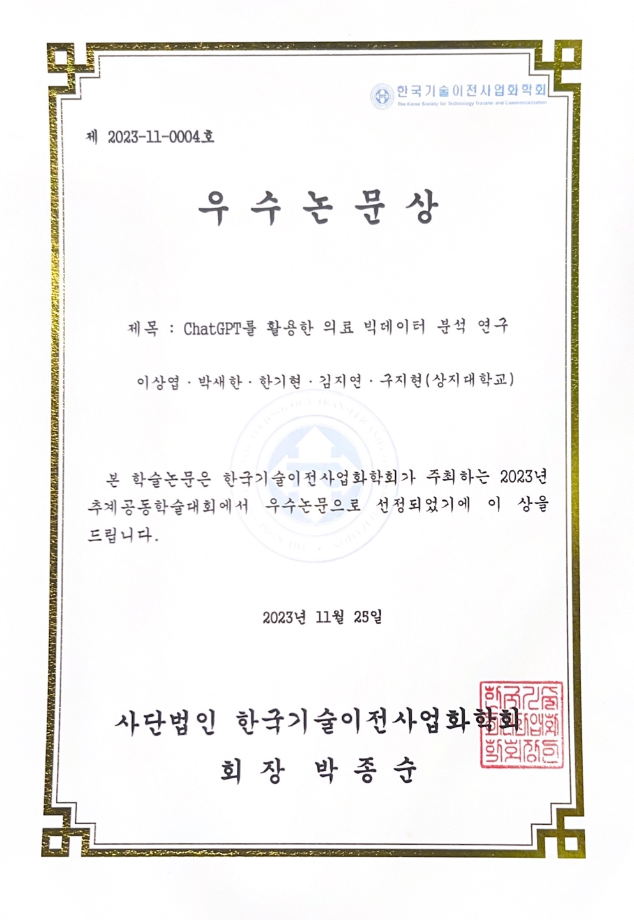 한국기술이전사업화학회
The Korea Society for Technology Transfer and Commercialization
제 2023-11-0004호
우수논문상
제목 : ChatGPT를 활용한 의료 빅데이터 분석 연구
이상엽·박새한·한기현·김지연·구지현(상지대학교)
본 학술논문은 한국기술이전사업화학회가 주최하는 2023년
추계공동학술대회에서 우수논문으로 선정되었기에 이 상을
드립니다.
2023년 11월 25일
사단법인 한국기술이전사업화학회
회장 박종순